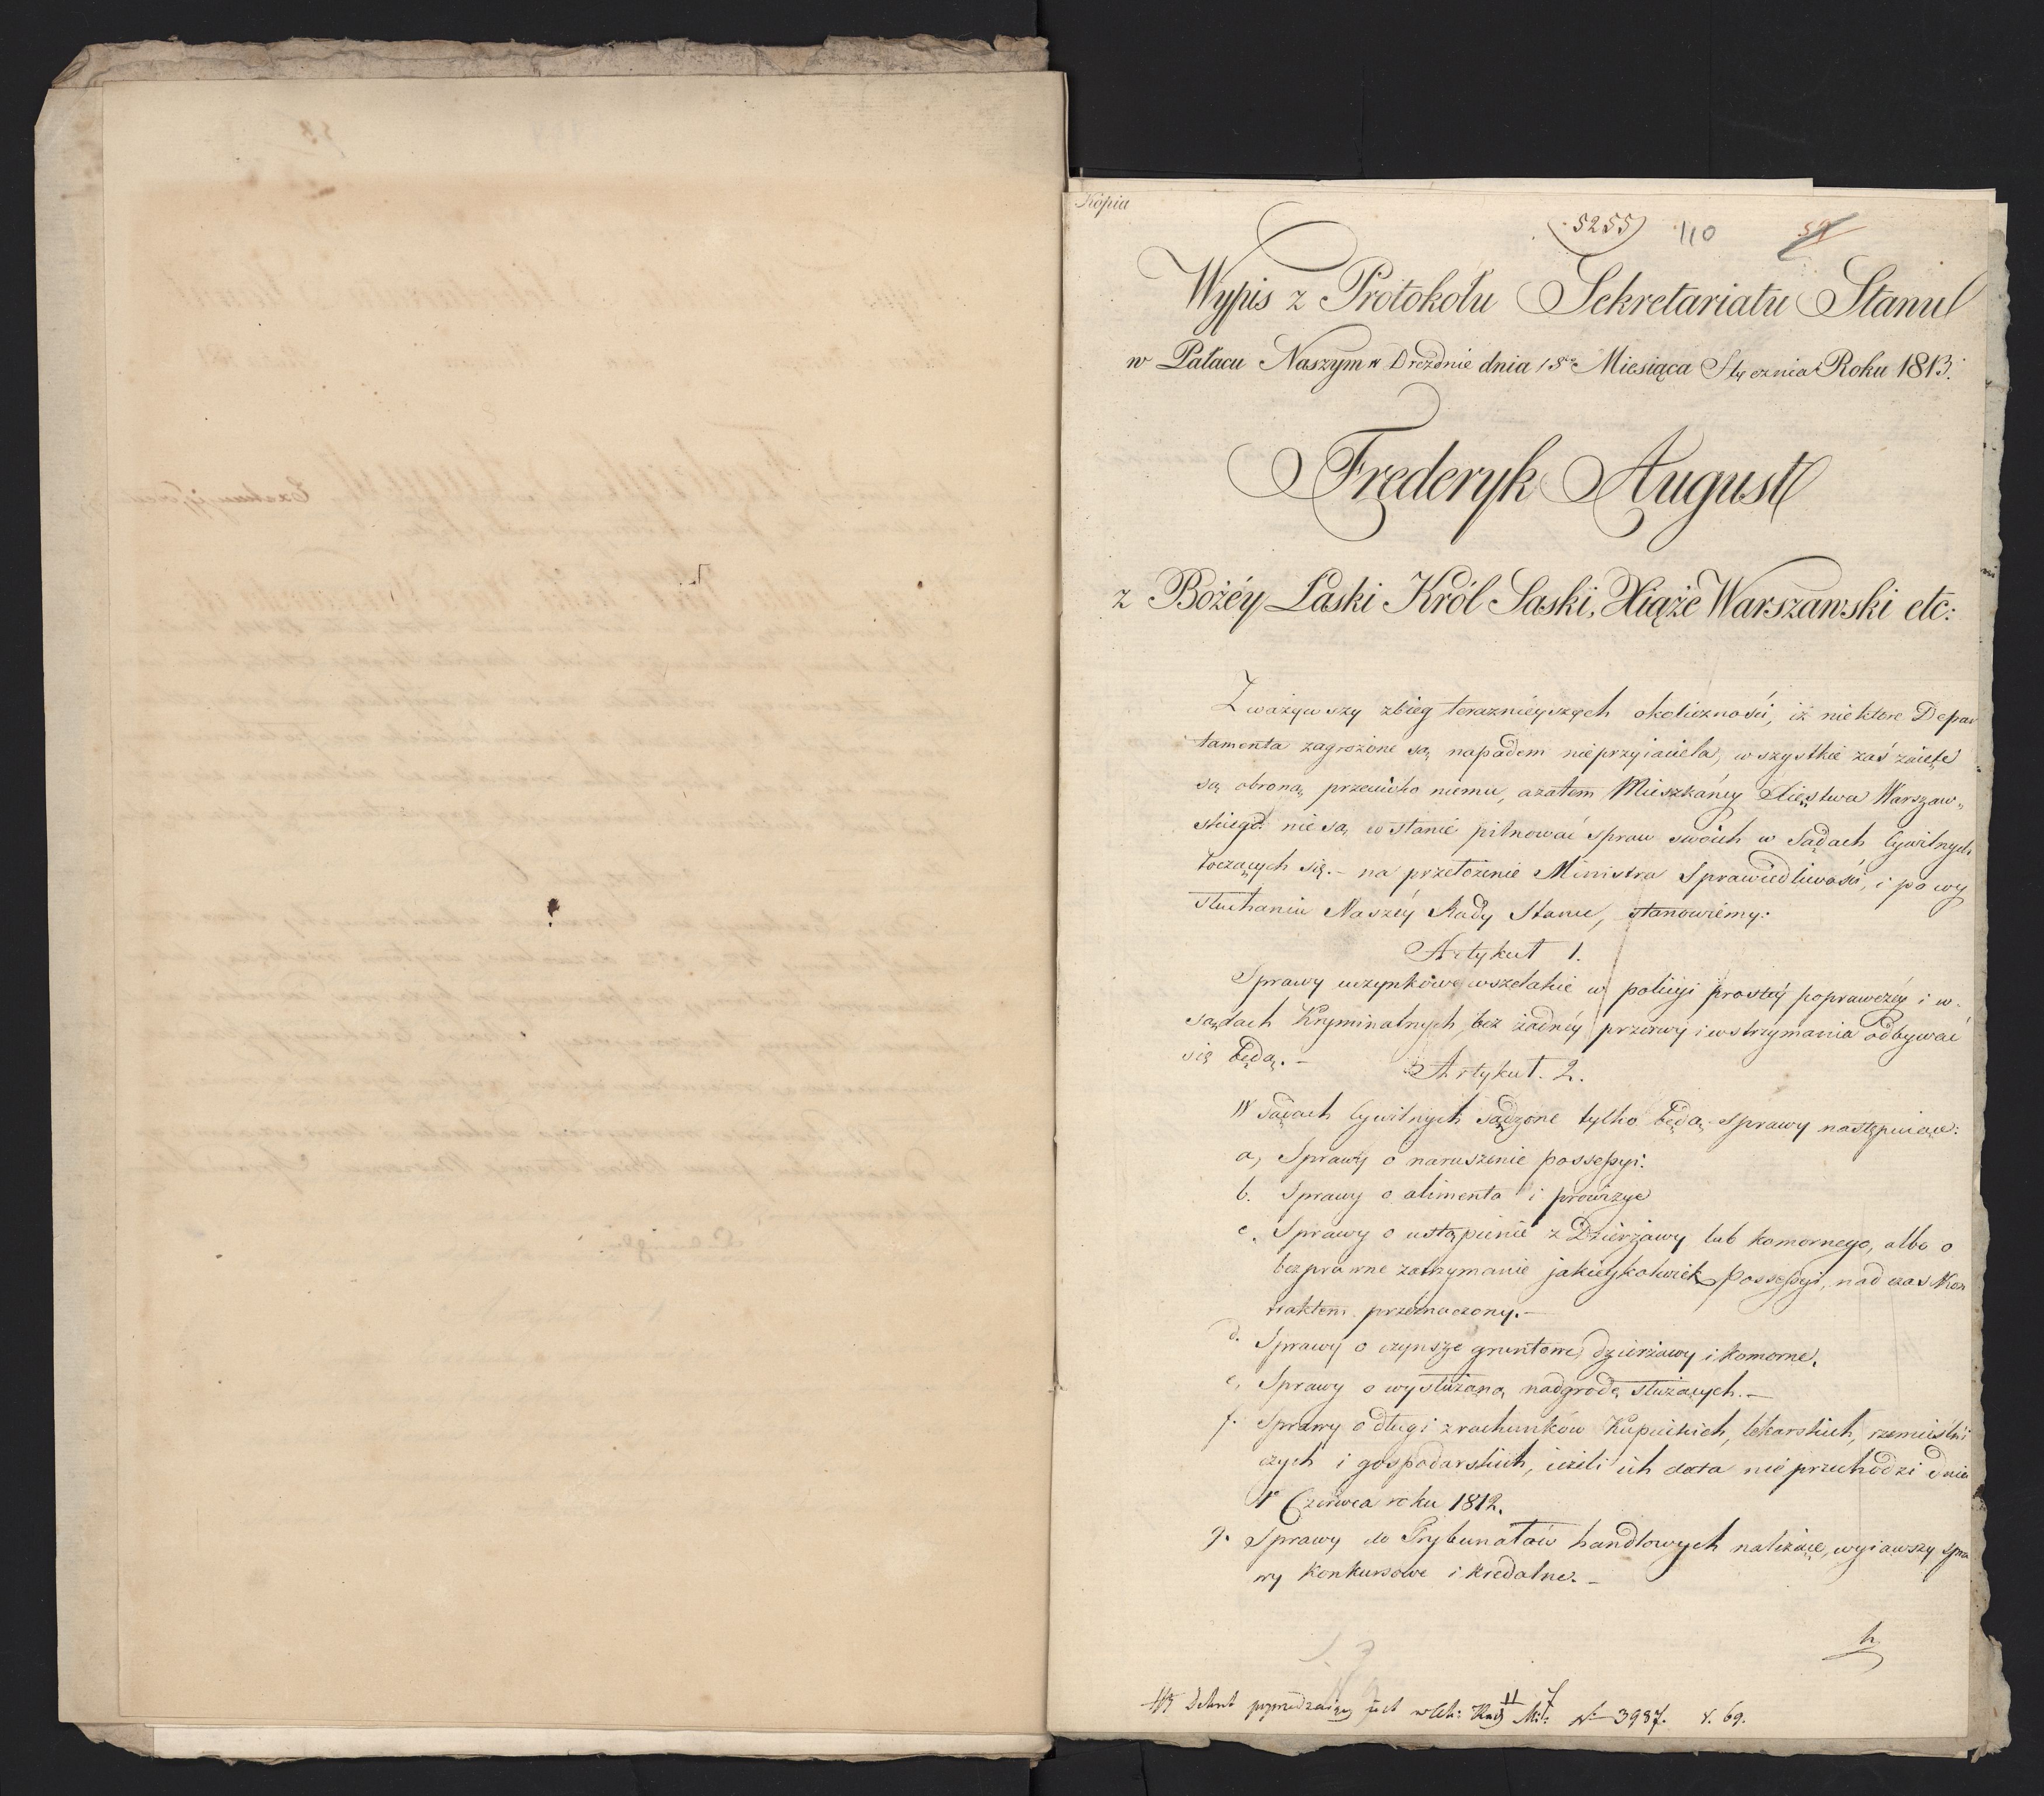 Kopia
5255 110 59
Wypis z Protokołu Sekretariatu Stanu
w Pałacu Naszym w Dreznie dnia 18go Miesiąca Stycznia Roku 1813.
Frederyk August
z Bożéy Łaski Król Saski, Xiąże Warszawski etc:
Zważywszy zbieg teraznieyszych okoliczności, iż niektore Depar
tamenta zagrożone są napadem nieprzyiaciela, wszystkie zaś zaięte
są obroną przeciwko niemu, azatem Mieszkańcy Xięstwa Warszaw„
skiego nie są wstanie pilnować spraw swoich w Sądach Cywilnych
toczących się. – na przełożenie Ministra Sprawiedliwości, i po wy
słuchaniu Naszéy Rady Stanu, stanowiemy:
Artykuł 1.
Sprawy uczynkowe wszelakie w policyi prostéy poprawczéy i w
sądach Kryminalnych, bez żadnéy przerwy i wstrzymania odbywać
się będą. –
Artykuł. 2.
W Sądach Cywilnych sądzone tylko będą sprawy następuiące:
a, Sprawy o naruszenie possessyi.
b. Sprawy o alimenta i prowizye
c. Sprawy o ustąpienie z Dzierżawy lub komornego, albo o
bezprawne zatrzymanie jakieykolwiek possessyi, nad czas Kon
traktem przeznaczony. –
d. Sprawy o czynsze gruntowe, dzierżawy i komorne.
e, Sprawy o wysłużoną nadgrodę służących. –
f. Sprawy o długi z rachunków Kupieckich, lekarskich, rzemieślni
czych i gospodarskich, ieżeli ich data nie przechodzi dnia
1o Czerwca roku 1812.
g. Sprawy do Trybunałów handlowych należące, wyiąwszy spra
wy konkursowe i kredalne. –
h
Dekret poprzedzaiący jest w Akt: Rady Mi: No 3987. V. 69.